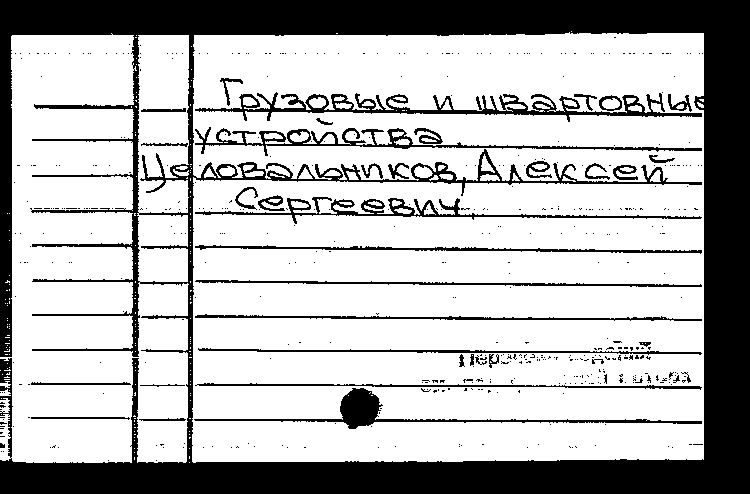 Грузовые и швартовные
устройства.
Целовальников, Алексей
Сергеевич.